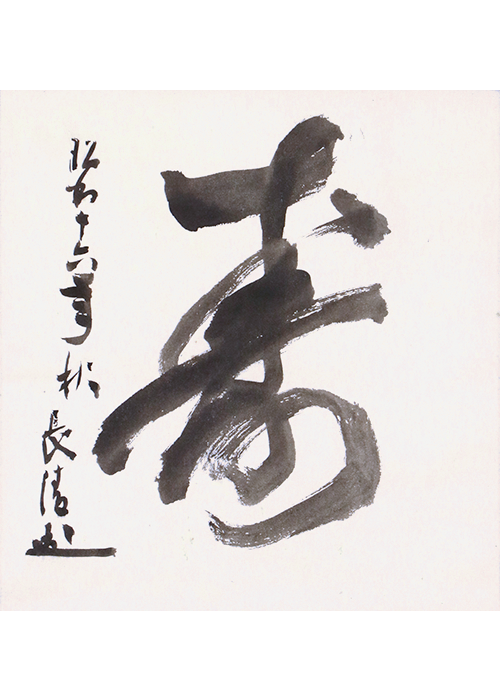 寿
昭和十六年秋
長清書